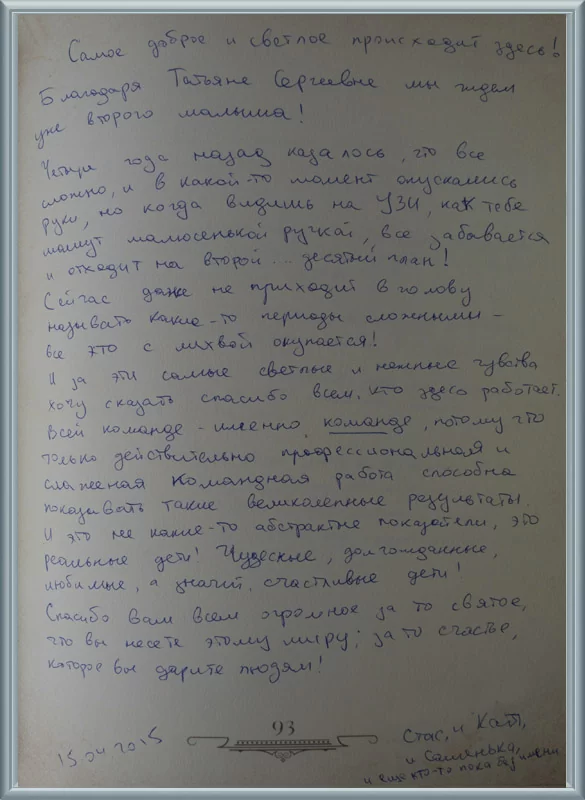 Самое доброе и светлое происходит здесь!
Благодаря Татьяне Сергеевне мы ждем
уже второго малыша!
Четыре года назад казалось, что все
сложно, и в какой-то момент опускались
руки, но когда видишь на УЗИ, как тебе
машут малюсенькой ручкой, все забывается
и отходит на второй... десятый план!
Сейчас даже не приходит в голову
называть какие-то периоды сложными -
все это с лихвой окупается!
И за эти самые светлые и нежные чувства
хочу сказать спасибо всем, кто здесь работает.
Всей команде - именно команде, потому что
только действительно профессиональная и
слаженая командная работа способна
показывать такие великолепные результаты.
И это не какие-то абстрактые показатели, это
реальные дети! Чудесные, долгожданные,
любимые, а значит, счастливые дети!
Спасибо вам всем огромное за то святое,
что вы несете этому миру; за то счастье,
которое вы дарите людям!
93
15 04 2015
Стас, и Катя,
и Саменька,
и еще кто-то пока без имени